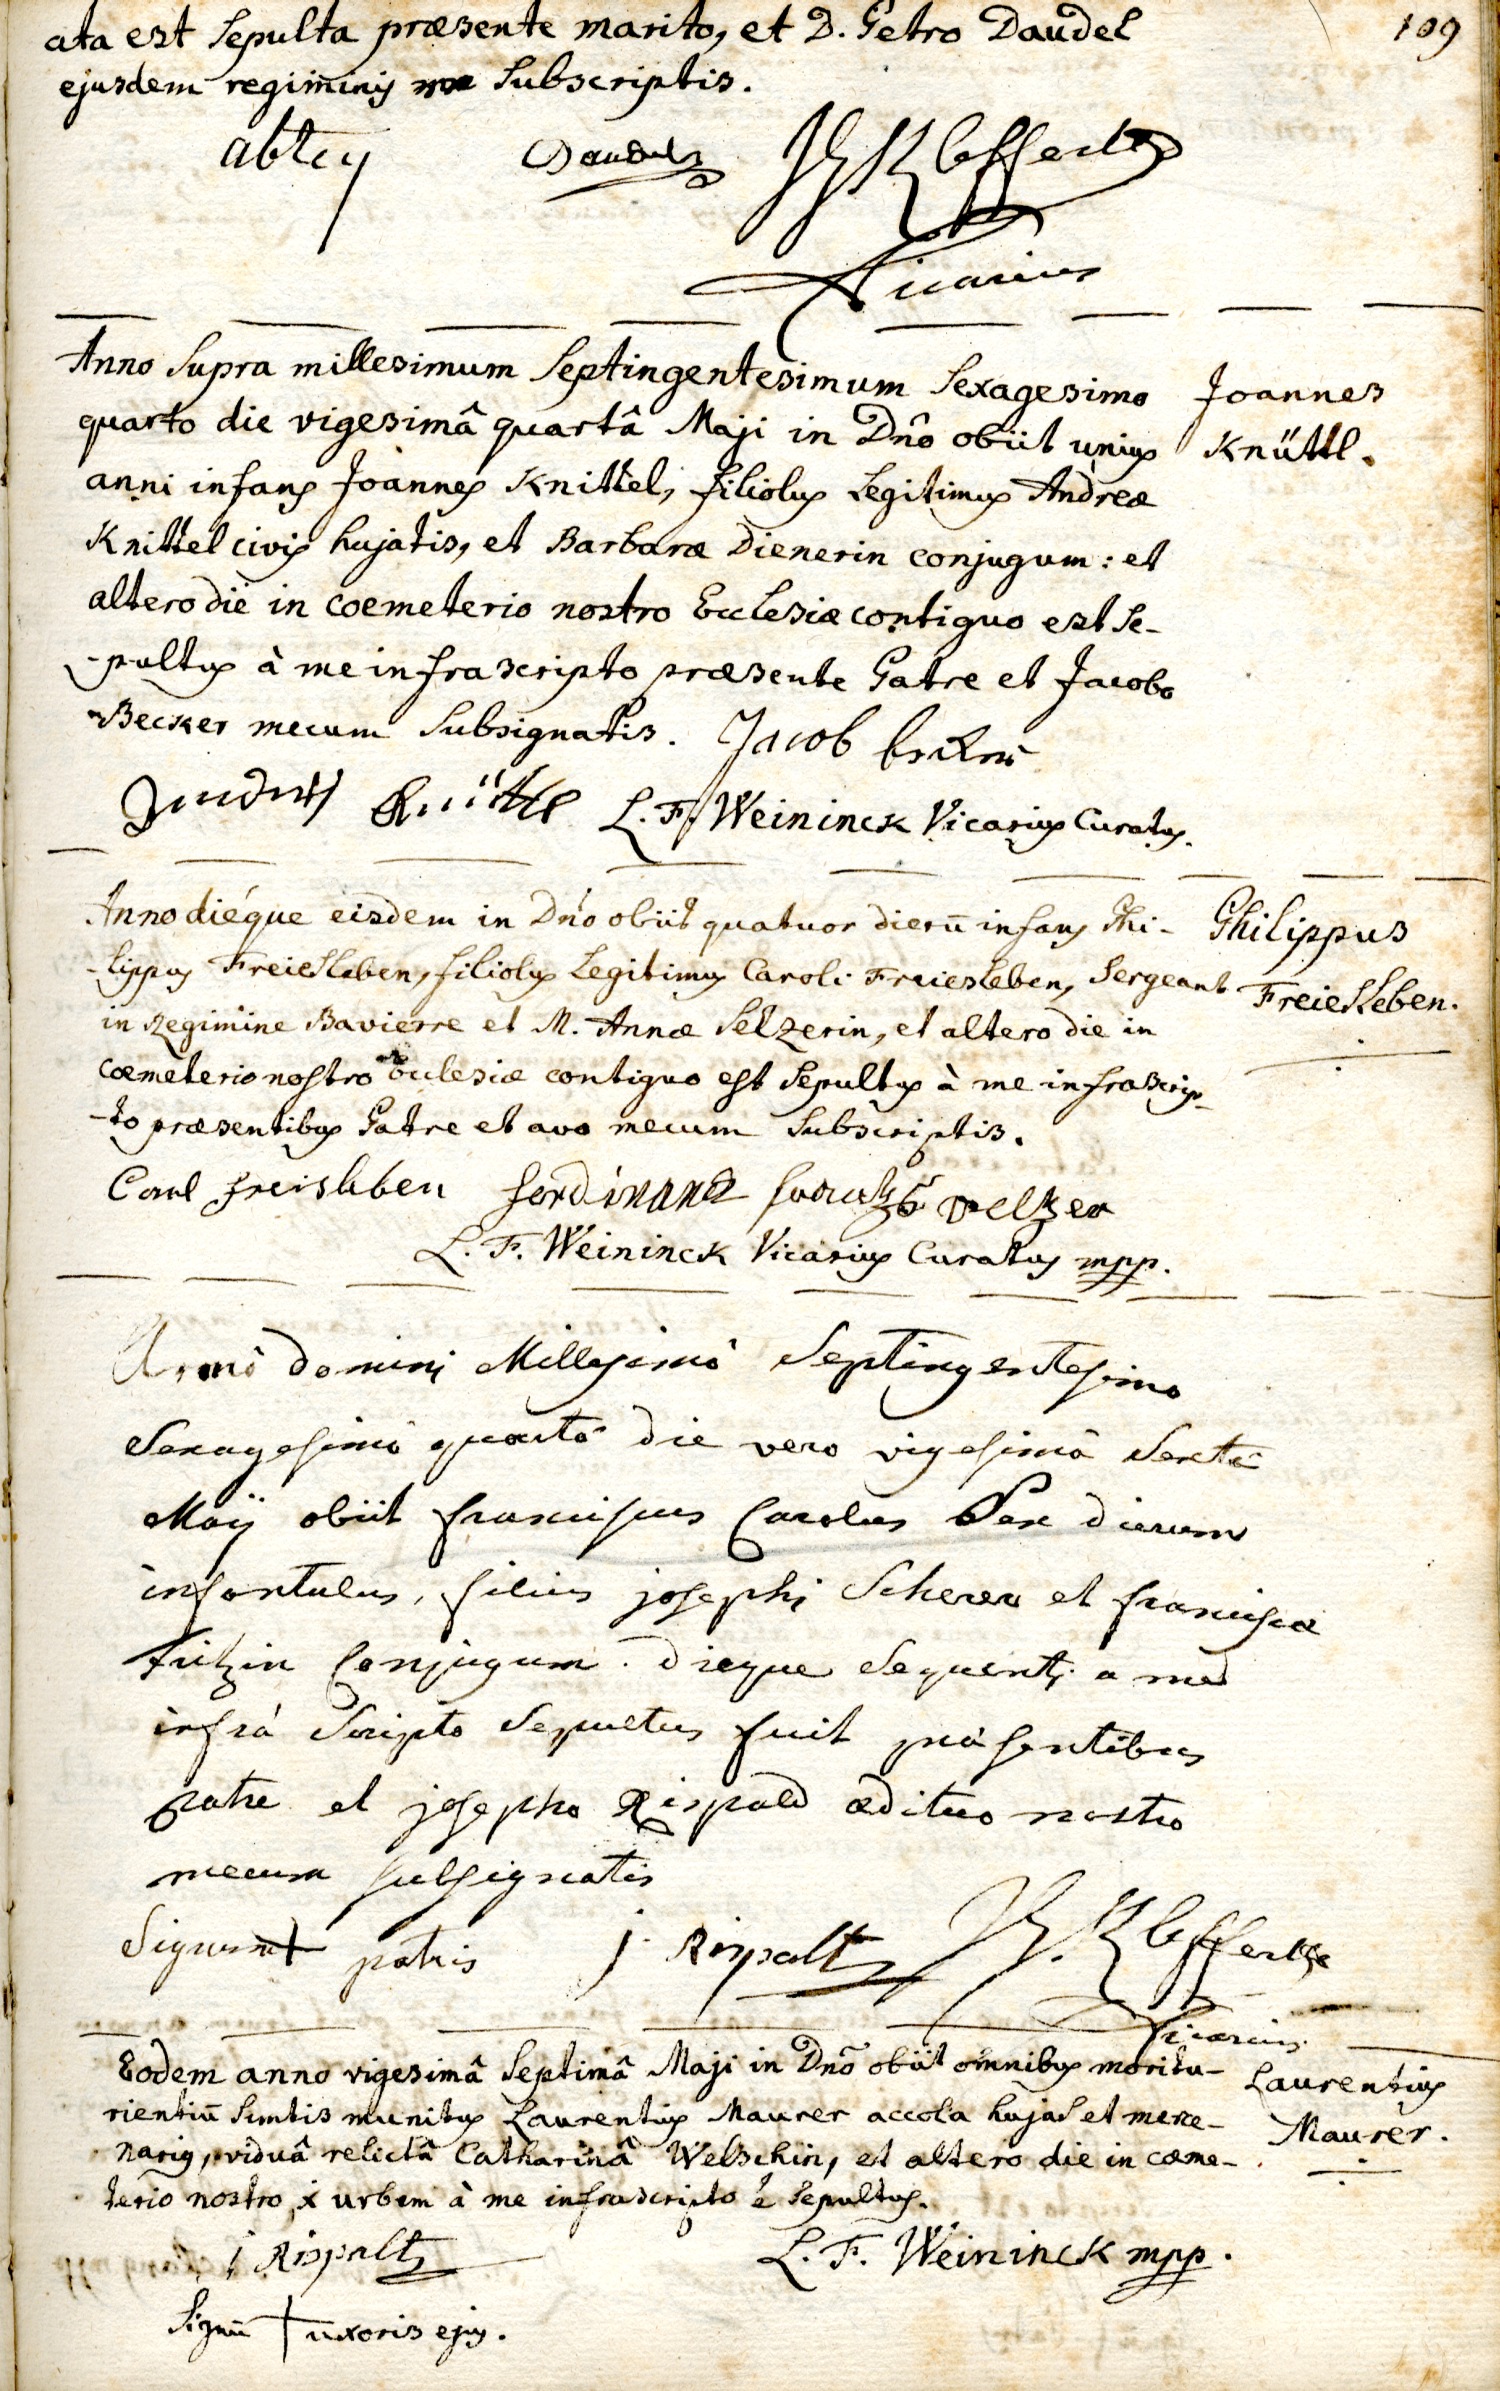 109
ata est Sepulta præsente marito, et D. Petro Daudel
ejusdem regiminis Subscriptis.
abtey Daudel Kleffert
Vicarius
Anno Supra millesimum Septingentesimum Sexagesimo
quarto die vigesimâ quartâ Maji in Dño obiit unius
anni infans Joannes Knittel, filiolus Legitimus Andreæ
Knittel civis hujatis, et Barbaræ Dienerin conjugum: et
altero die in coemeterio nostro Ecclesiæ contiguo est Se-
-pultus à me infrascripto præsente Patre et Jacobo
Becker mecum Subsignatis. Jacob becker
Knüttl L. F. Weininck Vicarius Curatus.
Joannes
Knüttl.
Anno diéque eisdem in Dño obiit quatuor dierū infans Phi-
-lippus Freiesleben, filiolus Legitimus Caroli Freiesleben, Sergeant
in Regimine Bavierre et M. Annæ Selzerin, et altero die in
cœmeterio nostro Ecclesiæ contiguo est Sepultus à me infrascrip-
-to præsentibus Patre et avo mecum Subscriptis.
Carl freisleben ferdinand
L. F. Weininck Vicarius Curatus mpp.
Philippus
Freiesleben.
Annô domini Millesimô Septingentesimo
Sexagesimô quartô die vero vigesimâ Sextâ
Maij obiit franciscus Carolus Sex dierum
infantulus, filius josephi Scherer et franciscæ
Fitzin Conjugum. dieque Sequenti a me
infrà Scripto Sepultus fuit præsentibus
patre et josepho Rispald ædituo nostro
mecum subsignatis
Signum + patris j. Rispalt Kleffert
Vicarius
Eodem anno vigesimâ Septimâ Maji in Dño obiit omnibus moritu-
rientiū Sumtis munitus Laurentius Maurer accola hujas et merce-
narius, viduâ relictâ Catharinâ Welschin, et altero die in cœme-
terio nostro x urbem à me infrascripto é Sepultus.
j Rispalt L. F. Weininck mpp.
Signū + uxoris ejus.
Laurentius
Maurer.